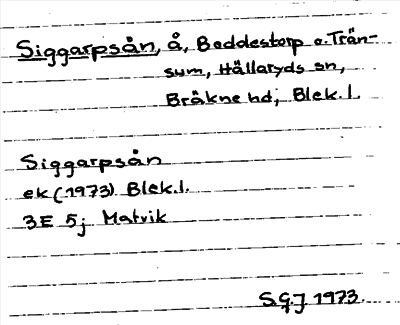 Siggarpsån, å, Boddestorp o. Trän-
sum, Hällaryds sn,
Bräkne hd, Blek. l.
Siggarpsån
ek (1973) Blek. l.
3E 5j Matvik
S.G.J 1973.